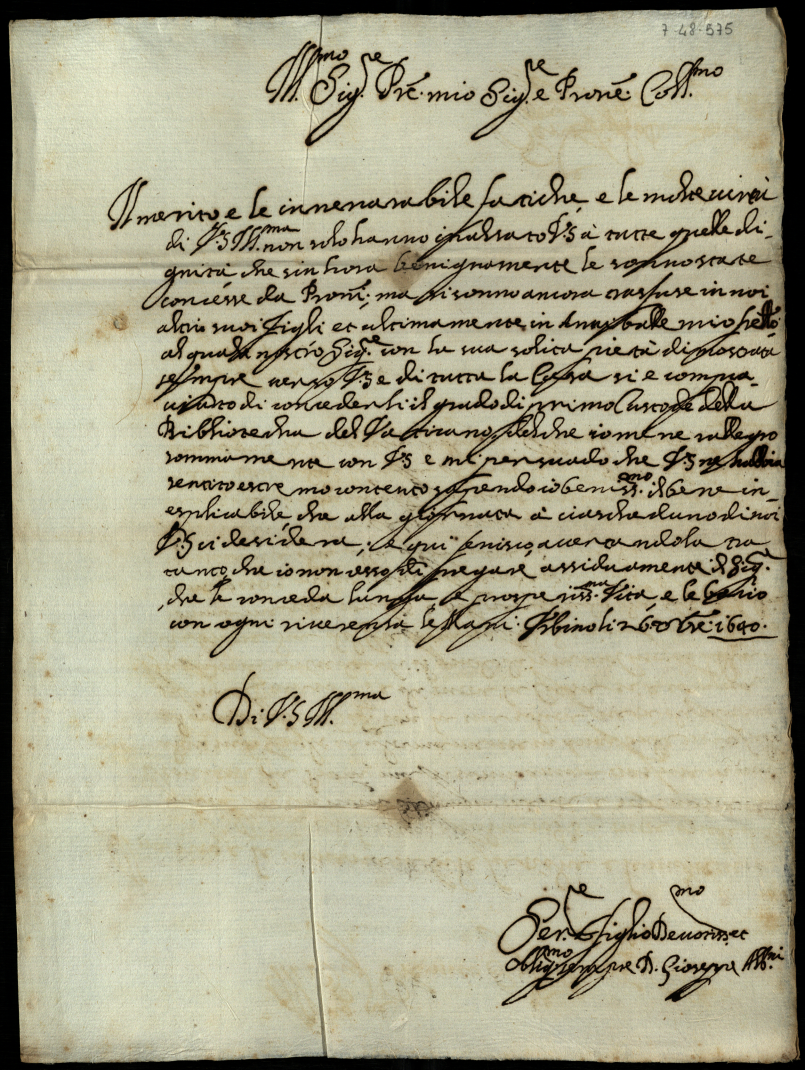 7-48-575
Ill.mo Sig.re Prē. mio Sig.re e Pronē. Coll.mo
Il merito e le innenarabile fatiche e le molte virtù
di V.S. Ill.ma non solo hanno inalzato V.S. à tutte quelle di-
gnità che sin hora benignamente le sonno state
concesse da Pronī; ma si sonno ancora trasfuse in noi
altri suoi figli et ultimamente in mio frello
al quale nostro Sig.re con la sua solita pietà dimostrata
sempre verso V.S. e di tutta la Casa si e compia-
ciuto di concederli il grado di primo Custode della
Bibliotecha del Vaticano, del che io me ne rallegro
sommamente con V.S. e mi persuado che V.S. ne habbia
sentito estremo contento sapendo io beniss.mo il bene in-
esplicabile che alla giornata à ciascheduno di noi
V.S. ci desidera, e qui finisco accertandola tra
tanto che io non cesso di pregare assiduamente il Sig.re
che le conceda lunga e prosperiss.ma Vita, e le bacio
con ogni riverenza le Mani. Urbino li 26 8bre. 1640.
Di V.S. Ill.ma
Ser.re e Figlio Devotiss.mo et
Oblig.mo sempre D. Gioseppe